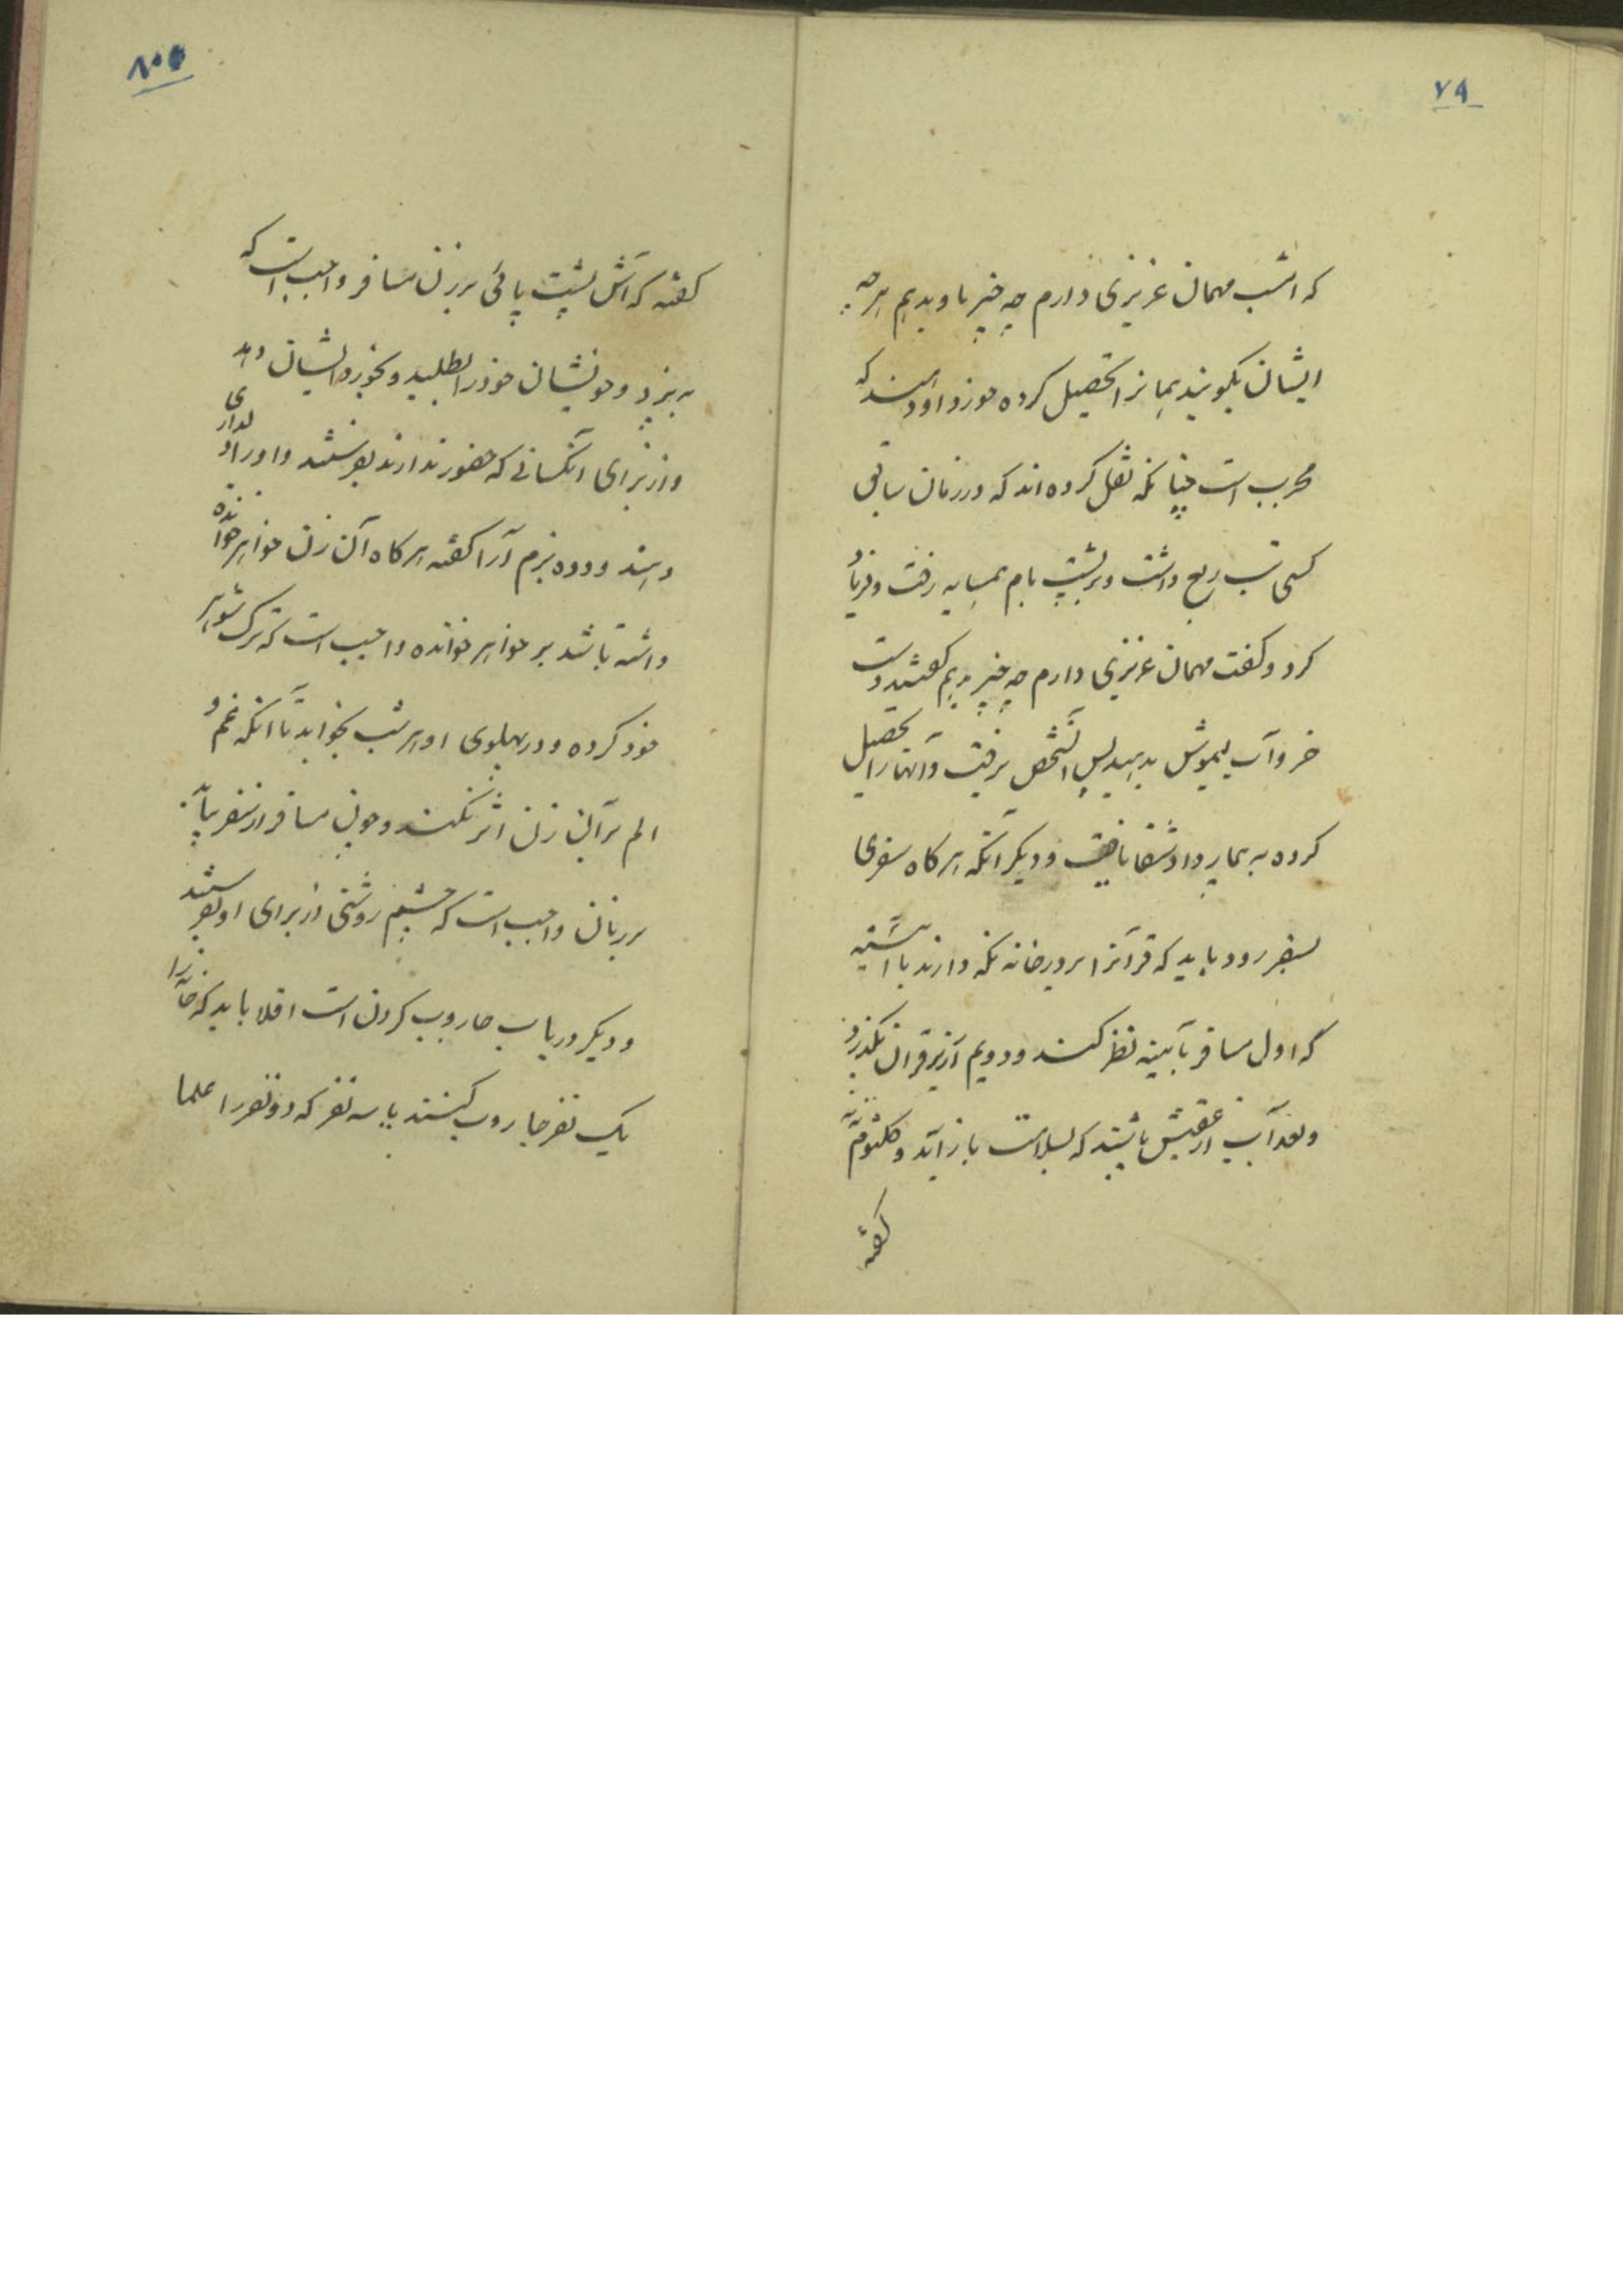 ۷۹
که امشب مهمان عزیزی دارم چه چیز باو بدهم هرچه
ایشان بگویند همانرا تحصیل کرده خورد او دهند که
مجربست چنانکه نقل کرده‌اند که در زمان سابق
کسی تب ربع داشت و بر پشت بام همسایه رفت و فریاد
کرد و گفت مهمان عزیزی دارم چه چیز بدهم گفتند دست
خر و آب لیموش بدهید پس آنشخص برفت و آنها را تحصیل
کرده به بیمار داد شفا یافت و دیگر آنکه هرگاه سفری
بسفر رود باید که قرآنرا بر در خانه نگه دارند با آئینه
که اول مسافر بآیینه نظر کند و دویم از زیر قرآن بگذرد
و بعد آب از عقبش باشند که بسلامت باز آید و کلثوم ننه
گفته
۸۰
گفته که آش پشت پائی بر زن مسافر واجب است که
به پزد و خویشان خود را بطلبد و بخورد ایشان دهد
و از برای آنکسانی که حضور ندارند بفرستند و او را دلداری
دهند و دده بزم آرا گفته هرگاه آن زن خواهر خوانده
داشته باشد بر خواهر خوانده واجب است که ترک شوهر
خود کرده و در پهلوی او هر شب بخوابد تا آنکه غم و
الم بر آن زن اثر نکند و چون مسافر از سفر بیاید
بر زنان واجب است که چشم روشنی از برای او بفرستند
و دیگر در باب جاروب کردن است اقلا باید که خانه را
یک نفر جاروب کنند یا سه نفر که دو نفر را علما